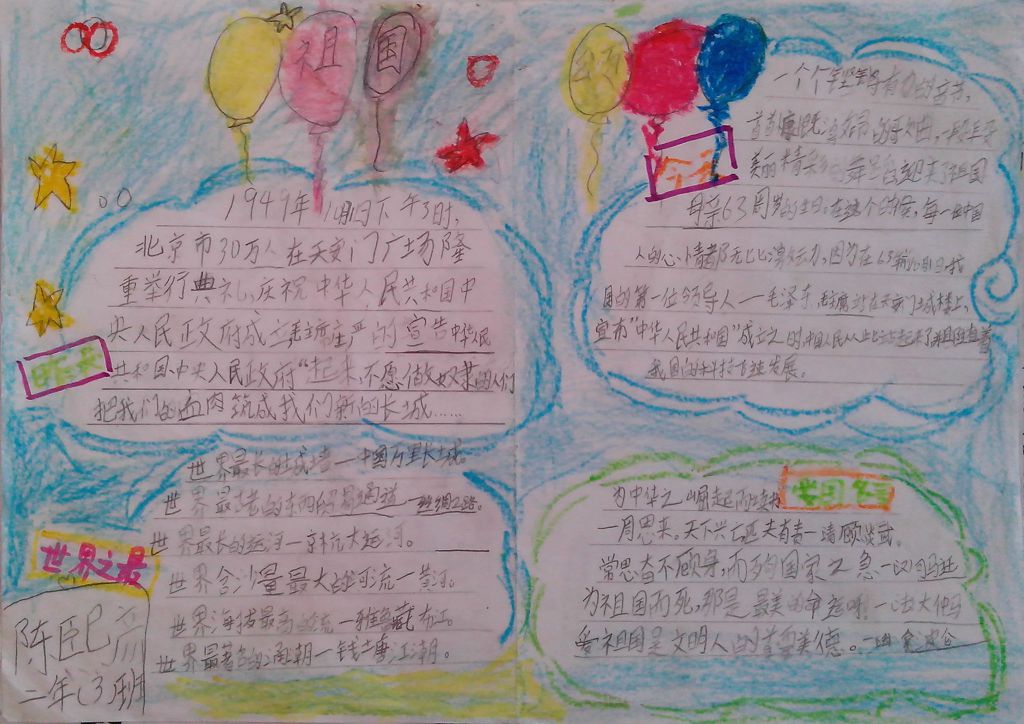 祖国
昨天
1949年10月1日下午3时,
北京市30万人在天安门广场隆
重举行典礼,庆祝中华人民共和国中
央人民政府成立毛主席庄严的宣告中华人民
共和国中央人民政府“起来,不愿做奴隶的人们
把我们的血肉筑成我们新的长城……
今天
一个个铿锵有力的音节,
美丽精彩的舞蹈迎来了祖国
母亲63周岁的生日。在这个时候,每一位中国
人的心情都无比激动,因为在63年前的
国的第一位领导人——毛泽东主席站在天安门城楼上,
宣布“中华人民共和国”成立之时,中国人民从此站起来了
我国的科技飞速发展。
世界之最
世界最长的城墙—中国万里长城
世界最老的东西贸易通道—丝绸之路。
世界最长的运河—京杭大运河。
世界含沙量最大的河流—黄河。
世界海拔最高的河流—雅鲁藏布江。
世界最著名的涌潮—钱塘江潮。
爱国名言
为中华之崛起而读书
—周恩来。天下兴亡匹夫有责—清顾炎武。
常思奋不顾身,而殉国家之急—司马迁
为祖国而死,那是最美的命运啊—大仲马
爱祖国是文明人的首要美德。—拿破仑
陈
二年(3)班